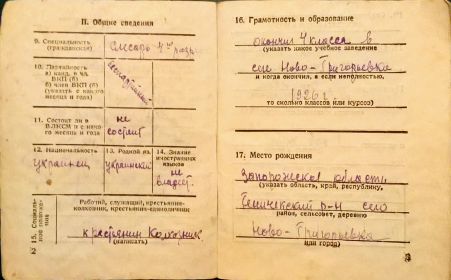 II. Общие сведения
9. Специальность (гражданская)
слесарь 4го разр
10. Партийность
а) канд. в чл.
ВКП (б)
б) член ВКП (б)
(указать с какого
месяца и года)
беспартийный
11. Состоит ли в
ВЛКСМ и с како-
го месяца и года
не
состоит
12. Национальность
украинец
13. Родной яз.
украинский
14. Знание
иностранных
языков
не
владеет
15. Социаль-
ное положе-
ние
Рабочий, служащий, крестьянин-
колхозник, крестьянин-единоличник
крестьянин Колхозник
(написать)
2
16. Грамотность и образование
окончил 4 класса в
(указать какое учебное заведение
селе Ново-Григорьевка
и когда окончил, а если неполностью,
1926 г
то сколько классов или курсов)
17. Место рождения
Запорожской области
(указать область, край, республику,
Генический р-н село
район, сельсовет, деревню
Ново-Григорьевка
или город)
3